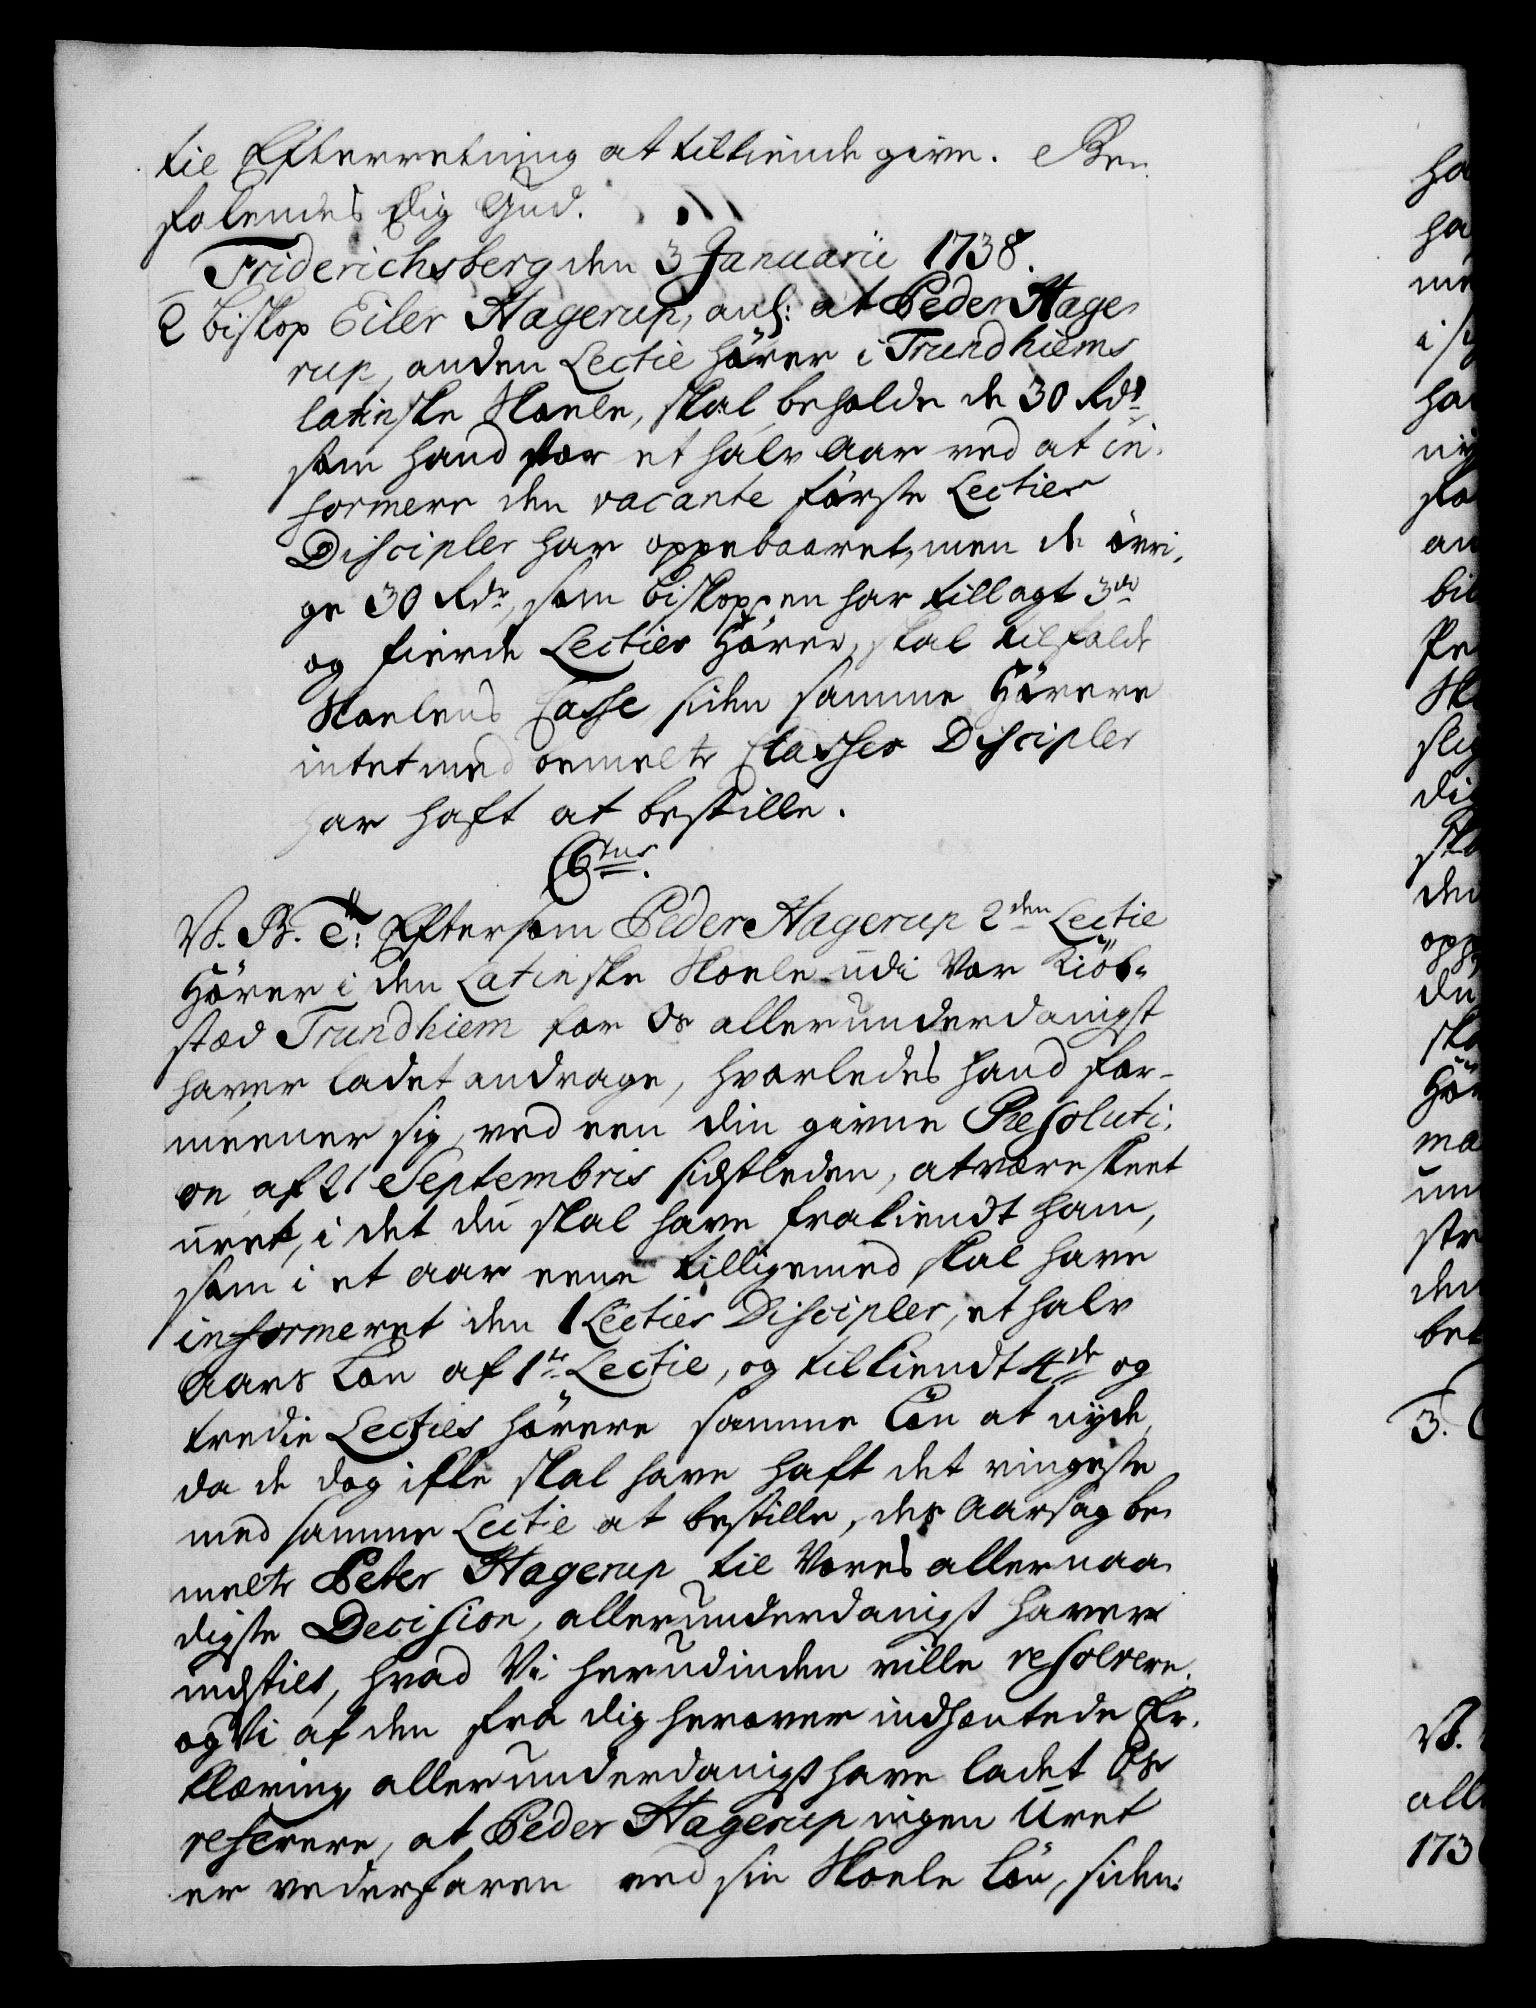 til Efterretning at tilkiende give. Be-
falendes dig Gud.
Friderichsberg den 3 Januarii 1738.
2 Biskop Eiler Hagerup, anl: at Peder Hage-
rup, anden Lectie Hörer i Trundhiems
latinske Skoele, skal beholde de 30 Rdr
som hand for et halv Aar ved at in-
formere den vacante förste Lecties
Discipler har oppebaaret, men de övri-
ge 30 Rdr, som Biskoppen har tillagt 3die
og fierde Lecties Hörer, skal tilfalde
Skoelens Casse, siden samme Hörere
intet med bemelte Classes Discipler
har haft at bestille.
Ctus.
V. B. T: Eftersom Peder Hagerup 2den Lectie
Hörer i den Latinske Skoele udi Vor Kiöb-
stæd Trundhiem for Os allerunderdanigst
haver ladet andrage, hvorledes hand for-
meener sig, ved een din givne Resoluti-
on af 21 Septembris sidstleden, at være skeet
uret, i det du skal have frakiendt ham,
som i et aar eene tilligemed skal have
informeret den 1 Lecties Discipler, et halv
Aars Lön af 1te Lectie, og tilkiendt 4de og
tredie Lecties hörere samme Lön at nyde,
da de dog ikke skal have haft det ringeste
med samme Lectie at bestille, des Aarsag be-
melte Peter Hagerup til Vores allernaa-
digste Decision, allerunderdanigst haver
indstilt, hvad Vi herudinden ville resolvere.
og Vi af den fra dig herover indhentede Er-
klæring allerunderdanigst have ladet Os
referere, at Peder Hagerup ingen Uret
er vederfaren ved sin Skoele Lön, siden